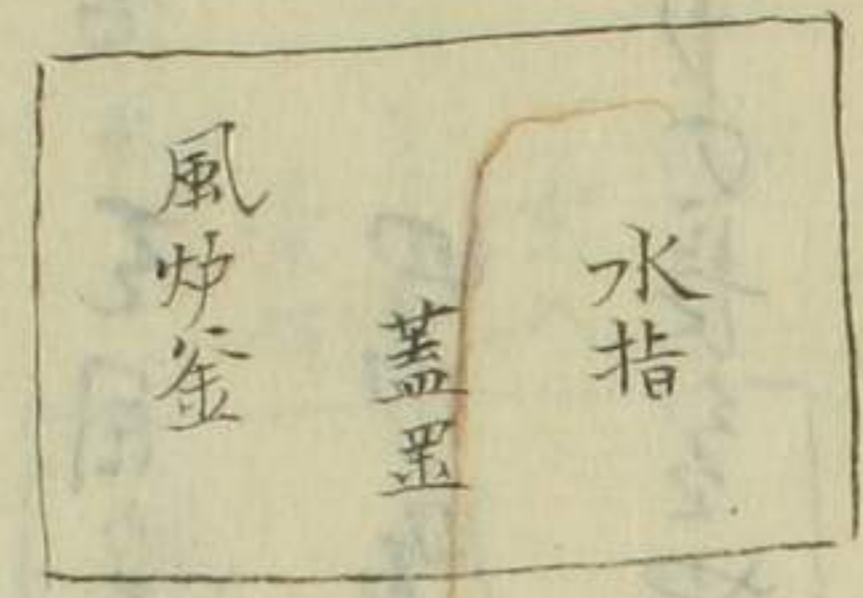 水指
蓋置
風炉釜